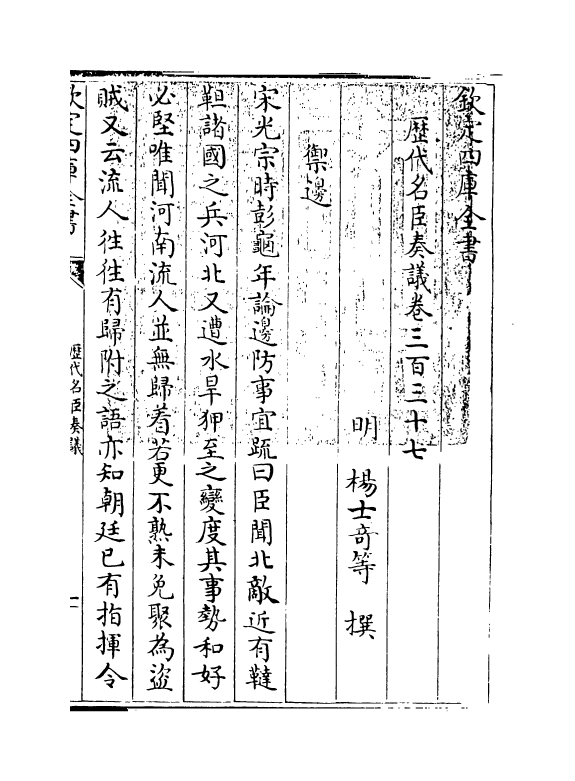 欽定四庫全書
歴代名臣奏議卷三百三十七
明 楊士竒等 撰
禦邊
宋光宗時彭龜年論邊防事宜疏曰臣聞北敵近有韃
靼諸國之兵河北又遭水旱狎至之變度其事勢和好
必堅唯聞河南流人並無歸着若更不熟未免聚為盜
賊又云流人徃徃有歸附之語亦知朝廷已有指揮令
欽定四庫全書
歴代名臣奏議